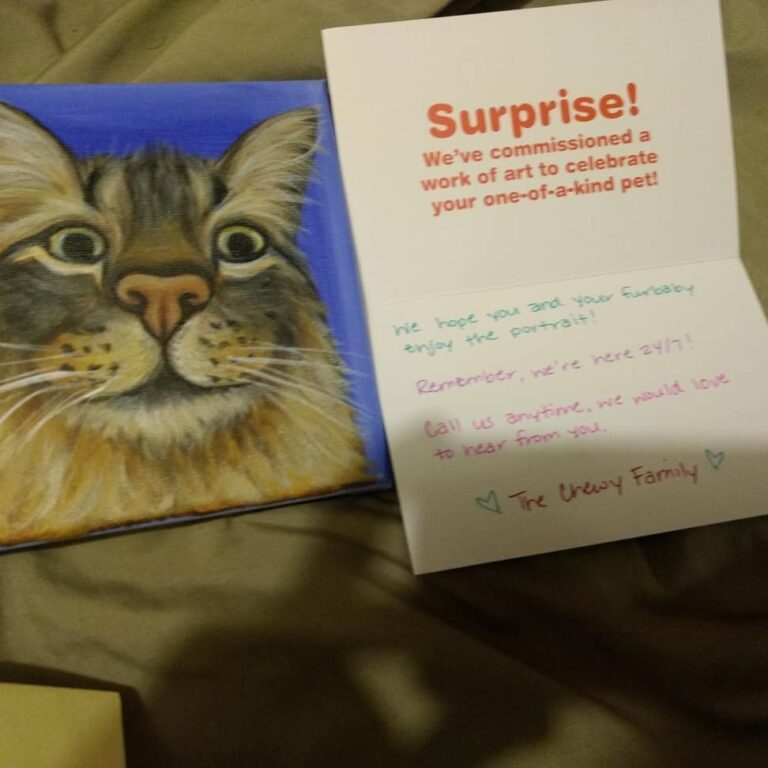 Surprise!
We've commissioned a
work of art to celebrate
your one-of-a-kind pet!
We hope you and your furbaby
enjoy the portrait!
Remember, we're here 24/7!
Call us anytime, we would love
to hear from you.
The Chewy Family